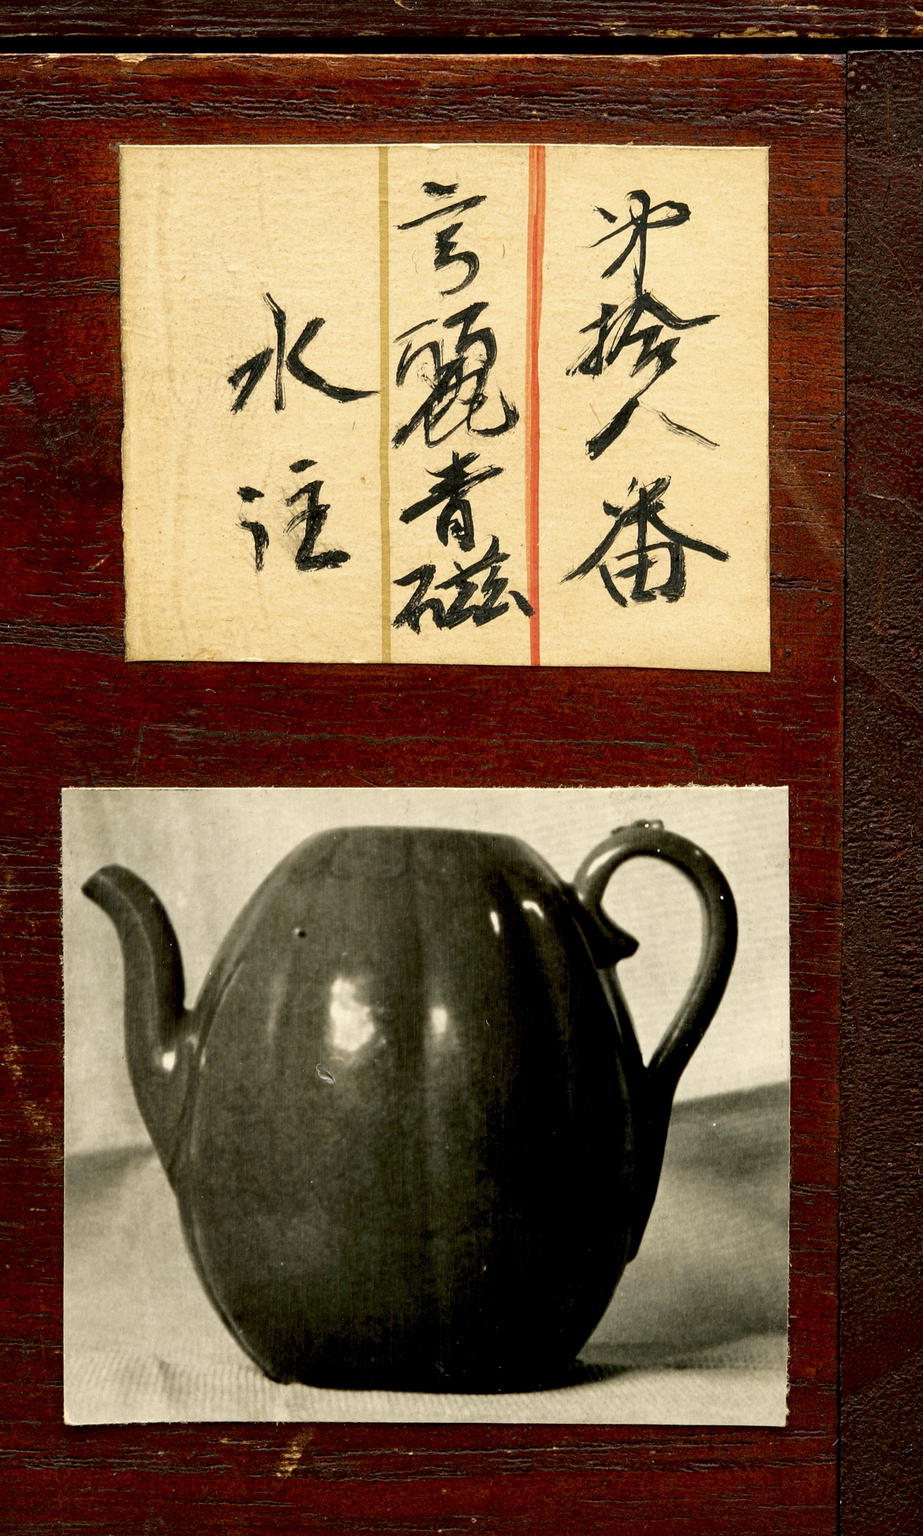 第拾八番
高麗青磁
水注